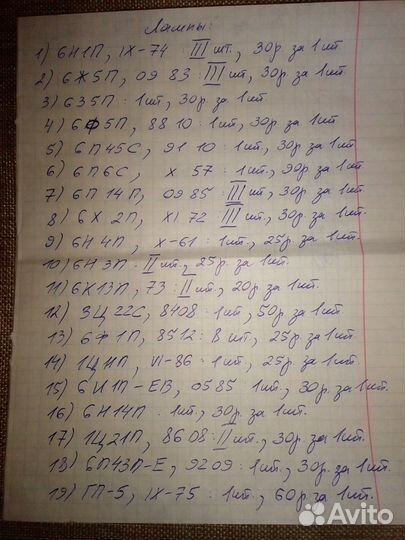 Лампы:
1) 6Н1П, IX-74 : III шт., 30р за 1шт
2) 6Ж5П, 09 83 : III шт, 30р. за 1шт.
3) 6Э5П : 1шт, 30р за 1шт
4) 6Ф5П, 88 10 : 1шт, 30р за 1шт
5) 6П45С, 91 10 : 1шт., 30р. за 1шт.
6) 6П6С, X 57 : 1шт., 90р. за 1шт
7) 6П 14П, 09 85 : III шт, 30р. за 1шт.
8) 6Х 2П, XI 72 III шт., 30р. за 1шт.
9) 6Н 4П, X-61 : 1шт., 25р. за 1шт.
10) 6Н 3П : II шт., 25р. за 1шт.
11) 6Х13П, 73 : II шт., 20р. за 1шт.
12) 3Ц 22С, 8408 : 1шт, 50р за 1шт.
13) 6Ф1П, 8512 : 8 шт., 25р. за 1шт.
14) 1Ц11П, VI-86 : 1шт, 25р. за 1шт.
15) 6И1П-ЕВ, 0585 1шт., 30р. за 1шт.
16) 6Н14П : 1шт., 30р. за 1шт.
17) 1Ц21П, 8608 : II шт., 30р. за 1шт.
18) 6П43П-Е, 9209 : 1шт., 30р. за 1шт.
19) ГП-5, IX-75 : 1шт., 60р. за 1шт.
Avito